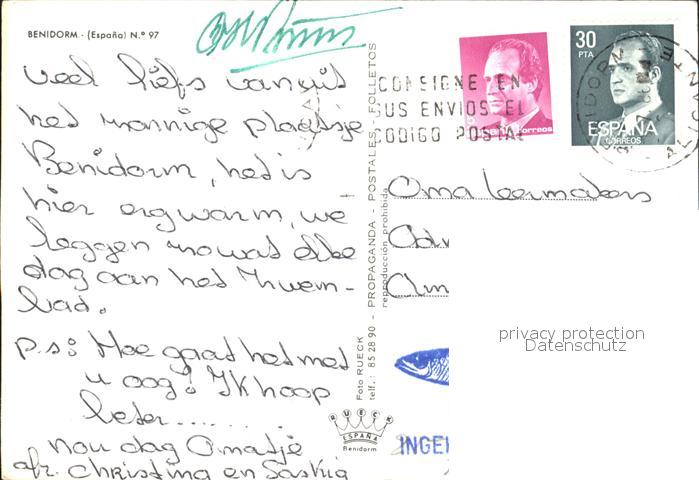 BENIDORM.- (España) N.º 97
Veel liefs vanuit
het zonnige plaatsje
Benidorm, het is
hier erg warm, we
leggen zowat elke
dag aan het zwem-
bad.
p.s: Hoe gaat het met
u oog? Ik hoop
beter........
nou dag Omatje
afz. Christina en Saskia
Foto RUECK
telf.: 85 28 90 - PROPAGANDA - POSTALES - FOLLETOS
reproducción prohibida
RUECK
ESPAÑA
Benidorm
CONSIGNE EN
SUS ENVIOS EL
CODIGO POSTAL
5
correos
30
PTA
ESPAÑA
CORREOS
Oma Leermakers
Adv
Am
privacy protection
Datenschutz
INGE